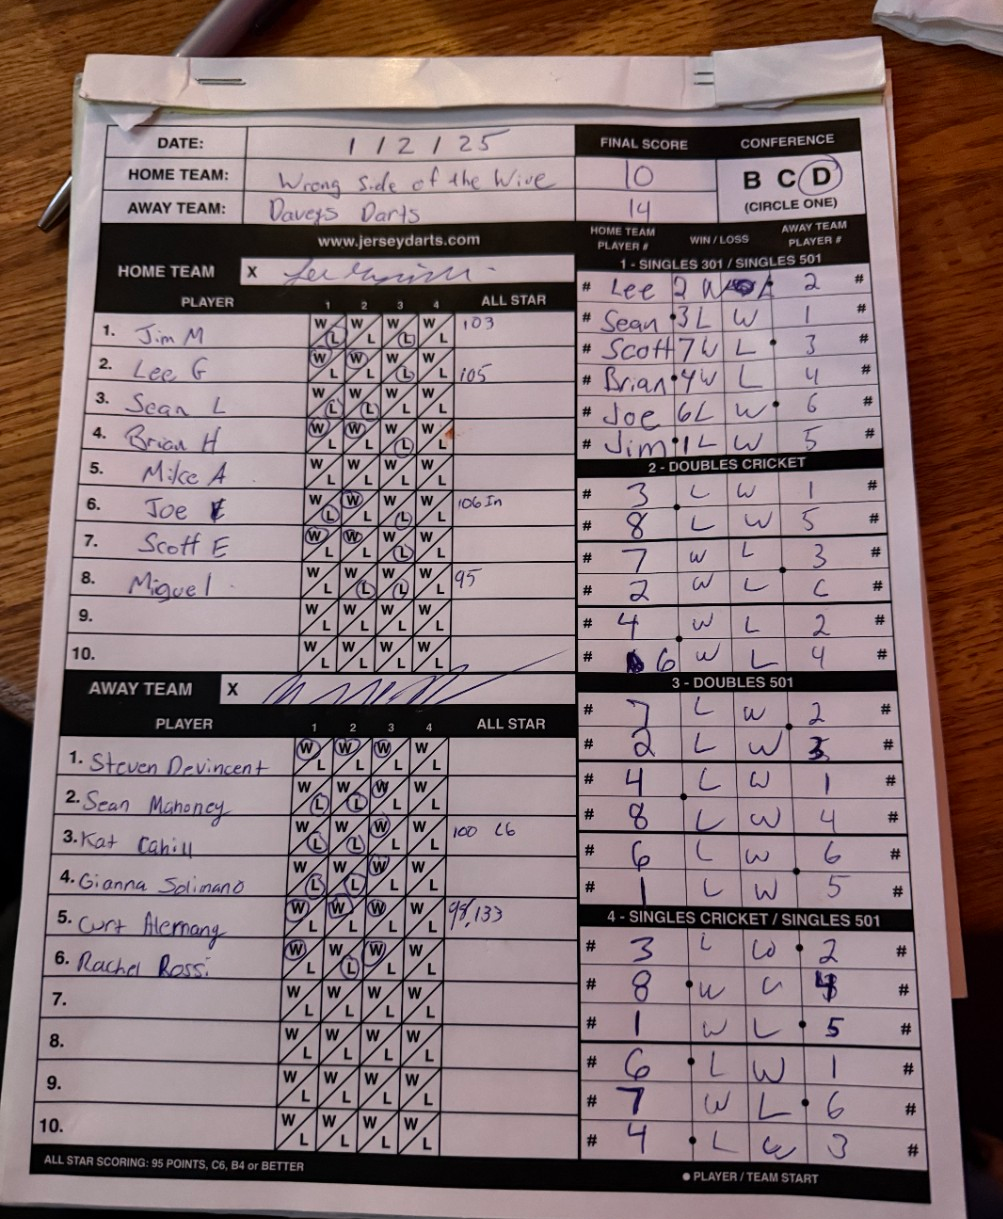 DATE: 1 / 2 / 25
HOME TEAM: Wrong Side of the Wire
AWAY TEAM: Daveys Darts
FINAL SCORE
10
14
CONFERENCE
B C D
(CIRCLE ONE)
www.jerseydarts.com
HOME TEAM X
PLAYER 1 2 3 4 ALL STAR
1. Jim M W L W L W L W L 103
2. Lee G W L W L W L W L 105
3. Sean L W L W L W L W L
4. Brian H W L W L W L W L
5. Mike A W L W L W L W L
6. Joe W L W L W L W L 106 In
7. Scott E W L W L W L W L
8. Miguel W L W L W L W L 95
9. W L W L W L W L
10. W L W L W L W L
AWAY TEAM X
PLAYER 1 2 3 4 ALL STAR
1. Steven Devincent W L W L W L W L
2. Sean Mahoney W L W L W L W L
3. Kat Cahill W L W L W L W L 100 C6
4. Gianna Solimano W L W L W L W L
5. Curt Alemany W L W L W L W L 98, 133
6. Rachel Rossi W L W L W L W L
7. W L W L W L W L
8. W L W L W L W L
9. W L W L W L W L
10. W L W L W L W L
ALL STAR SCORING: 95 POINTS, C6, B4 or BETTER
HOME TEAM PLAYER # WIN / LOSS AWAY TEAM PLAYER #
1 - SINGLES 301 / SINGLES 501
# Lee 2 W 2 #
# Sean 3 L W 1 #
# Scott 7 W L 3 #
# Brian 4 W L 4 #
# Joe 6 L W 6 #
# Jim 1 L W 5 #
2 - DOUBLES CRICKET
# 3 L W 1 #
# 8 L W 5 #
# 7 W L 3 #
# 2 W L #
# 4 W L 2 #
# 6 W L 4 #
3 - DOUBLES 501
# 7 L W 2 #
# 2 L W 3 #
# 4 L W 1 #
# 8 L W 4 #
# 6 L W 6 #
# 1 L W 5 #
4 - SINGLES CRICKET / SINGLES 501
# 3 L W 2 #
# 8 W L 4 #
# 1 W L 5 #
# 6 L W 1 #
# 7 W L 6 #
# 4 L W 3 #
● PLAYER / TEAM START